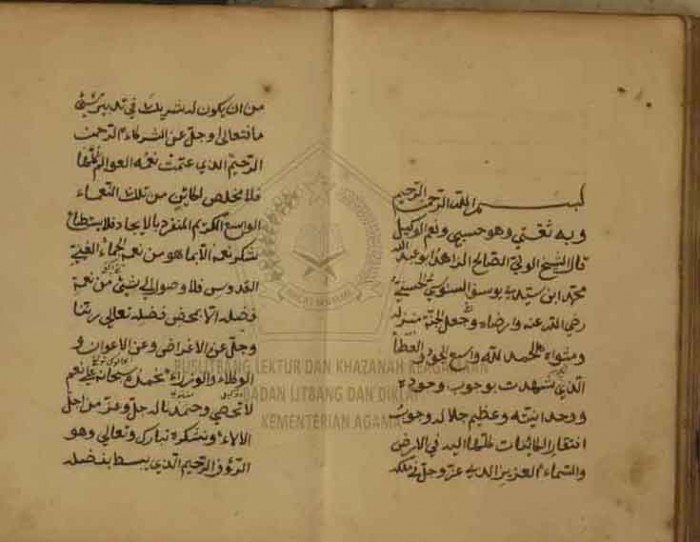 بسم الله الرحمن الرحيم
وبه ثقتي وهو حسبي ونعم الوكيل
قال الشيخ الولي الصالح الزاهد ابو عبد الله
محمد ابن سيدي يوسف السنوسي الحسني
رضي الله عنه وارضاه وجعل الجنة منزله
ومثواه الحمد لله واسع الجود والعطا
الذي شهدت بوجوب وجوده
ووحدانيته وعظيم جلاله وجوب
افتقار الكائنات كلها اليه في الارض
والسماء العزيز الذي عز وجل في ملكه
من ان يكون له شريك في تدبير شيئ
ما فتعالى وجل عن الشركاء الرحمن
الرحيم الذي عمت نعمه العوالم كلها
فلا مخلص لكائن من تلك النعماء
الواسع الكريم المنفرد بالايجاد فلا يستطاع
شكر نعمه الا بما هو من نعمه الجماء الغني
القدوس فلا وصول الى شيئ من نعمه
فضله الا بمحض فضله تعالى ربنا
وجل عن الاغراض وعن الاعوان و
الوكلاء والوزراء نحمده سبحانه على نعم
لا تحصى وحمدنا له جل وعز من اجل
الالاء ونشكره تبارك وتعالى وهو
الرؤف الرحيم الذي يبسط بفضله
PUSLITBANG LEKTUR DAN KHAZANAH KEAGAMAAN
BADAN LITBANG DAN DIKLAT
KEMENTERIAN AGAMA